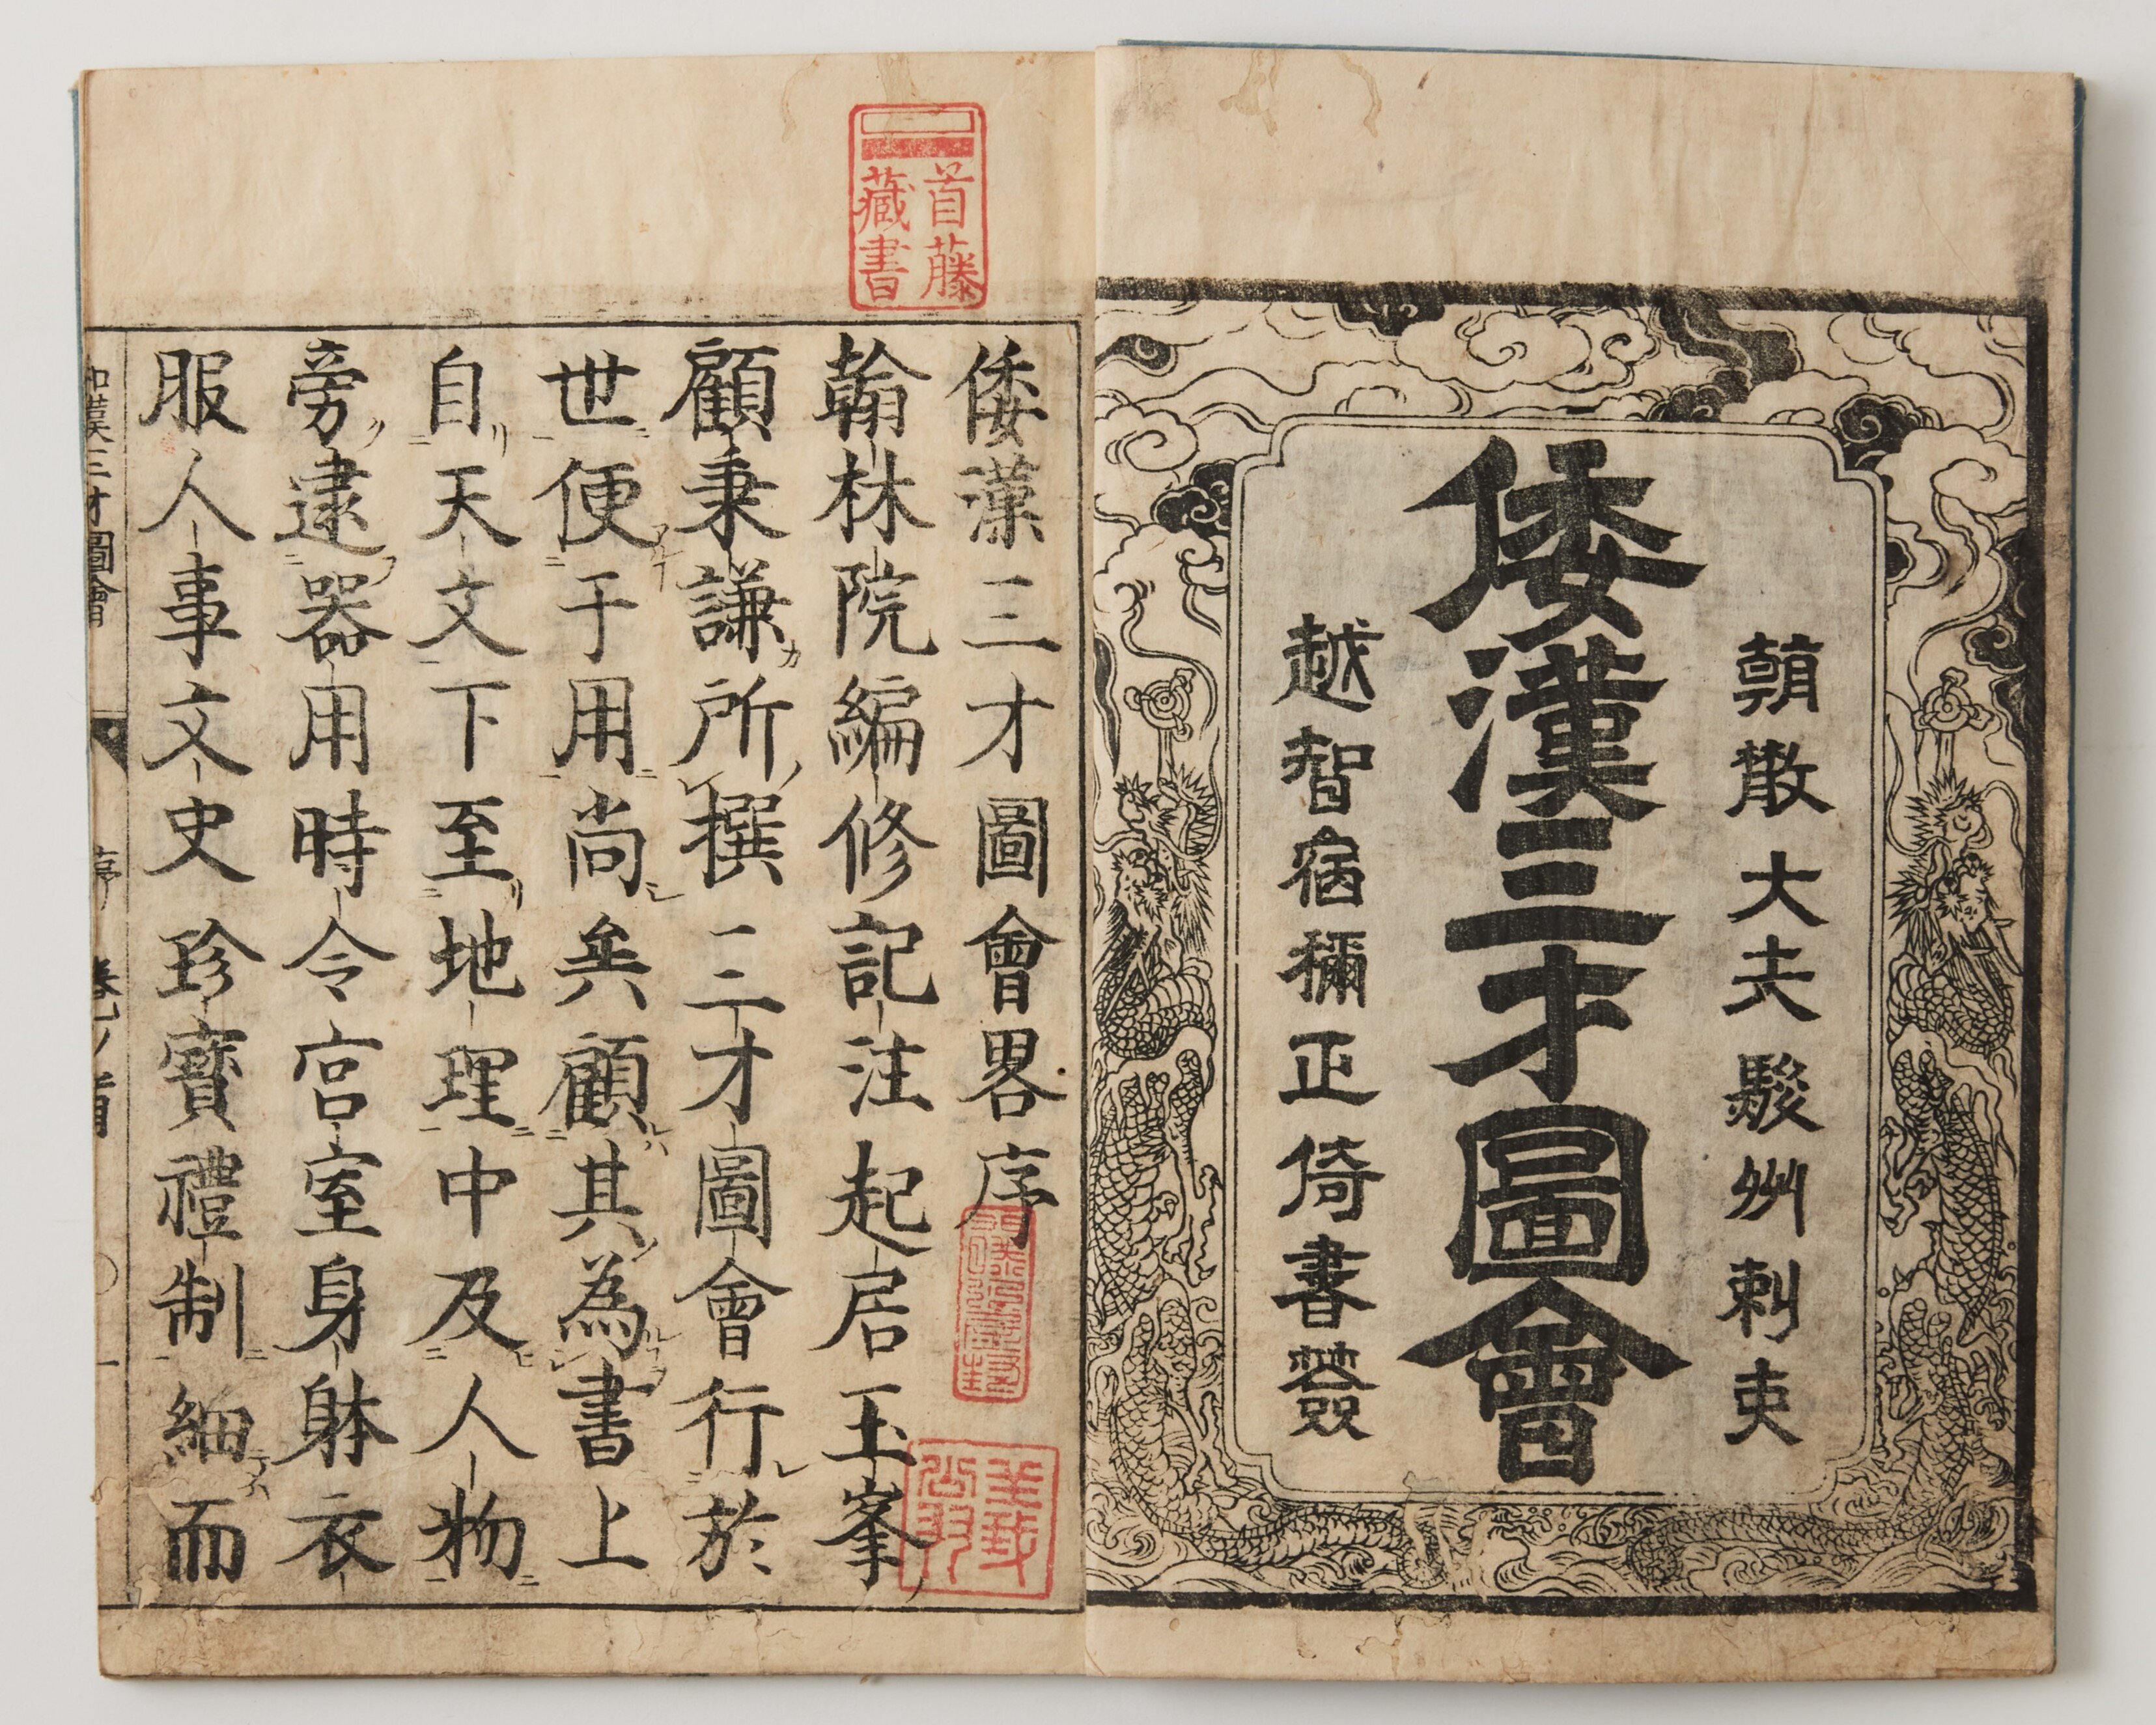 朝散大夫駿州刺吏
倭漢三才圖會
越智宿禰正倚書簽
首藤
藏書
倭漢三才圖會畧序
翰林院編修記注起居玉峯
顧秉謙所撰三才圖會行於
世便于用尚矣顧其為書上
自天文下至地理中及人物
旁逮器用時令宮室身躰衣
服人事文史珍寶禮制細而
和漢三才圖會 序 卷ノ首 一